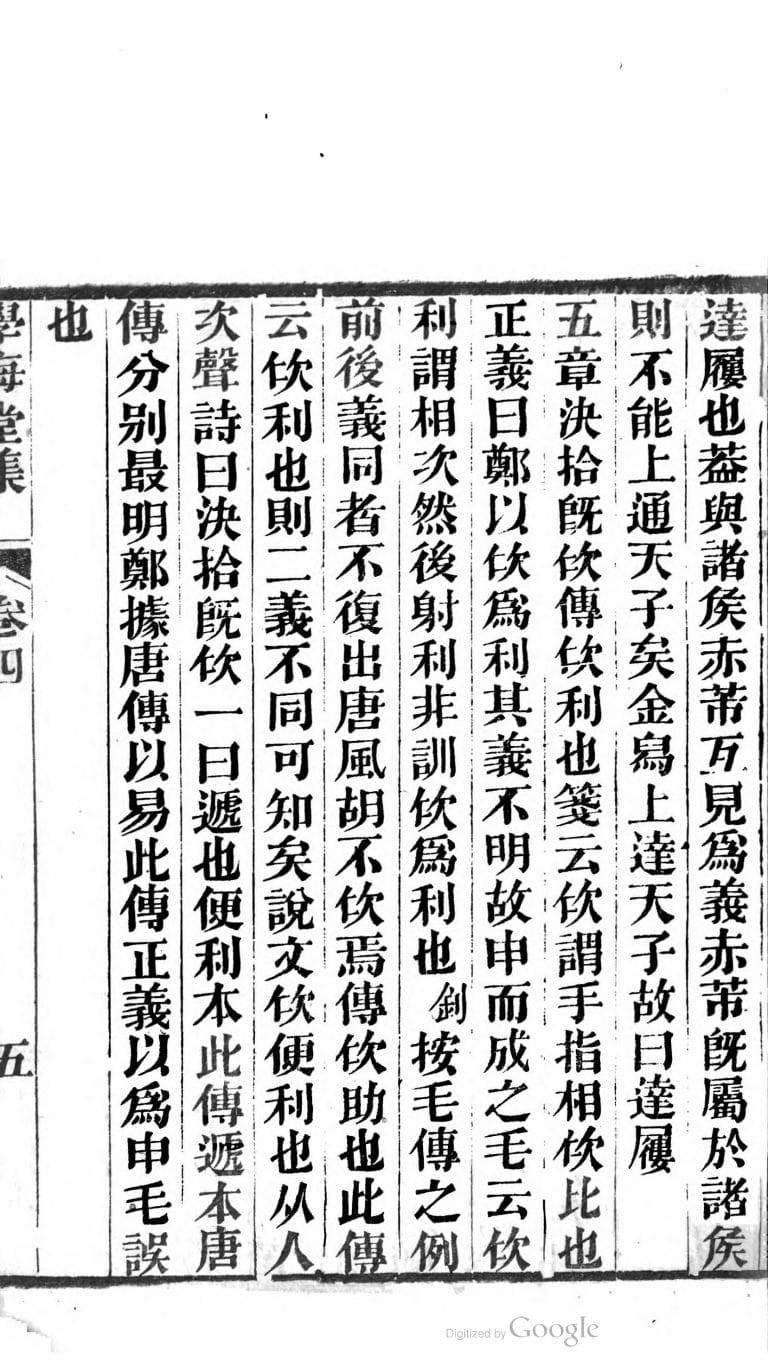 達屨也葢與諸矦赤芾互見爲義赤芾旣屬於諸矦
則不能上通天子矣金舄上達天子故曰達屨
五章決拾旣佽傳佽利也箋云佽謂手指相佽比也
正義曰鄭以佽爲利其義不明故申而成之毛云佽
利謂相次然後射利非訓佽爲利也釗按毛傳之例
前後義同者不復出唐風胡不佽焉傳佽助也此傳
云佽利也則二義不同可知矣說文佽便利也从人
次聲詩曰決拾旣佽一曰遞也便利本此傳遞本唐
傳分别最明鄭據唐傳以易此傳正義以爲申毛誤
也
學海堂集 卷四 五
Digitized by Google